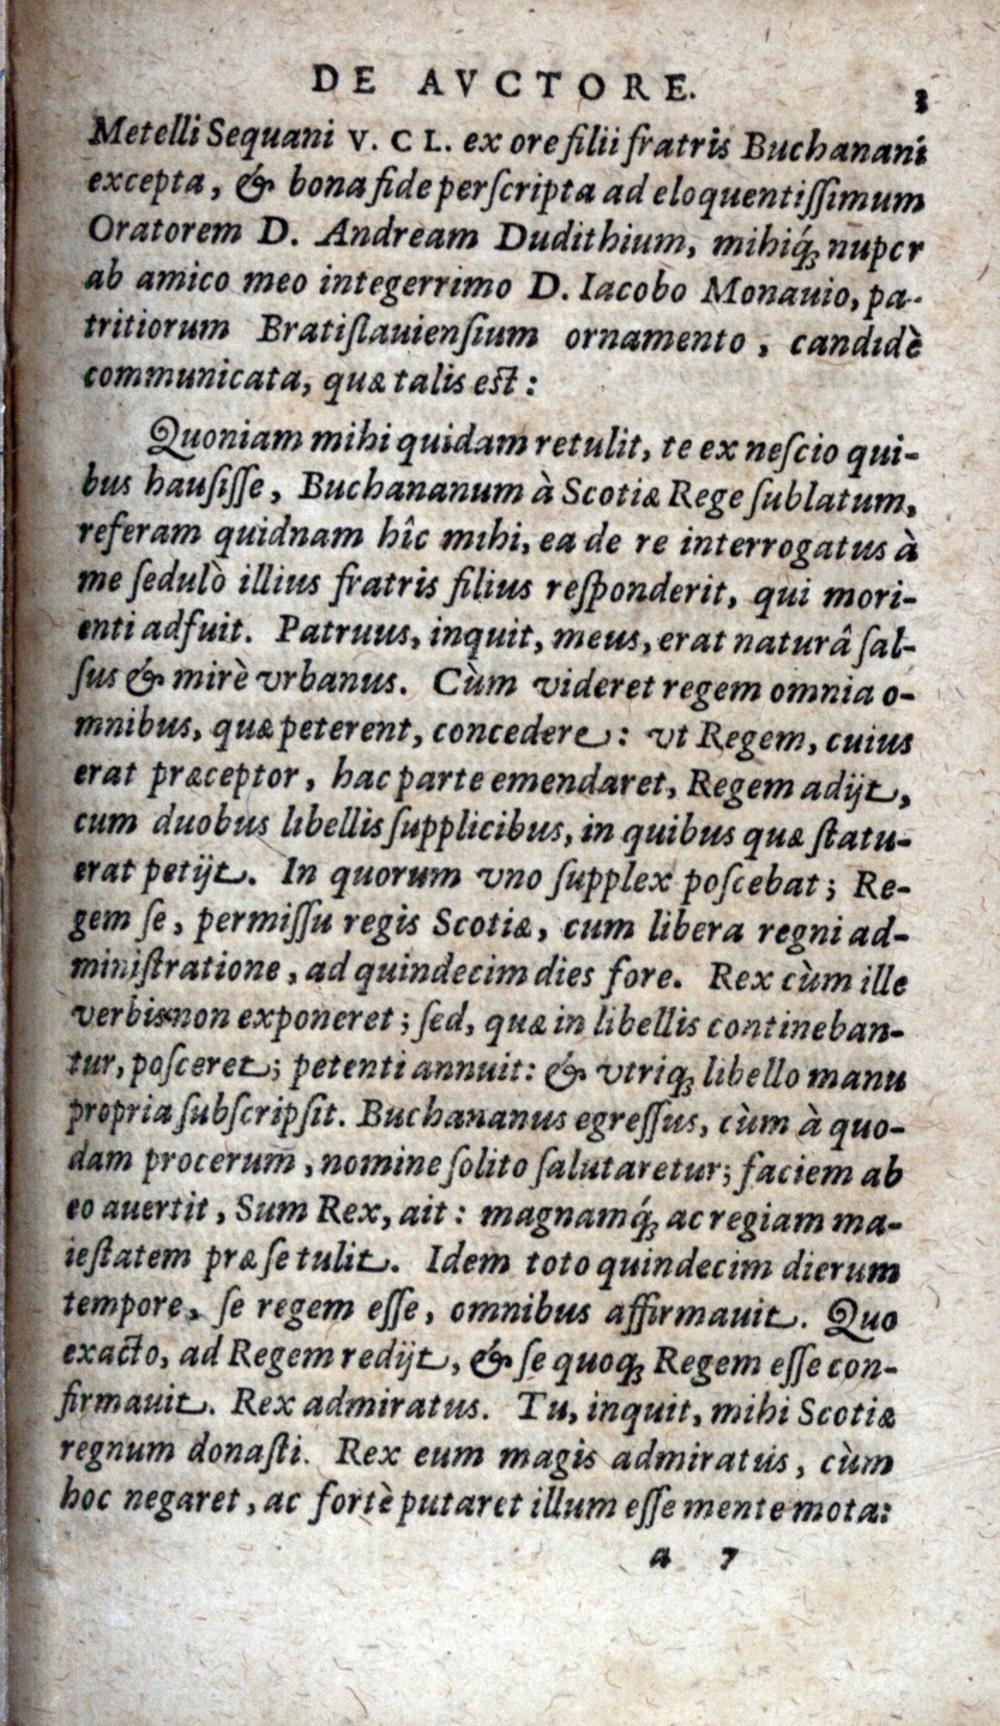 DE AVCTORE.
Metelli Sequani V. CL. ex ore filii fratris Buchanani
excepta, & bona fide perſcripta ad eloquentiſſimum
Oratorem D. Andream Dudithium, mihiq́; nuper
ab amico meo integerrimo D. Iacobo Monauio, pa-
tritiorum Bratiſlauienſium ornamento, candidè
communicata, quæ talis eſt:
Quoniam mihi quidam retulit, te ex neſcio qui-
bus hauſiſſe, Buchananum à Scotiæ Rege ſublatum,
referam quidnam hîc mihi, ea de re interrogatus à
me ſedulò illius fratris filius reſponderit, qui mori-
enti adfuit. Patruus, inquit, meus, erat naturâ ſal-
ſus & mirè vrbanus. Cùm videret regem omnia o-
mnibus, quæ peterent, concedere: vt Regem, cuius
erat præceptor, hac parte emendaret, Regem adijt,
cum duobus libellis ſupplicibus, in quibus quæ ſtatu-
erat petijt. In quorum vno ſupplex poſcebat; Re-
gem ſe, permiſſu regis Scotiæ, cum libera regni ad-
miniſtratione, ad quindecim dies fore. Rex cùm ille
verbis non exponeret; ſed, quæ in libellis contineban-
tur, poſceret; petenti annuit: & vtriq; libello manu
propria ſubſcripſit. Buchananus egreſſus, cùm à quo-
dam procerum, nomine ſolito ſalutaretur; faciem ab
eo auertit, Sum Rex, ait: magnamq́; ac regiam ma-
ieſtatem præ ſe tulit. Idem toto quindecim dierum
tempore, ſe regem eſſe, omnibus affirmauit. Quo
exacto, ad Regem redijt, & ſe quoq; Regem eſſe con-
firmauit. Rex admiratus. Tu, inquit, mihi Scotiæ
regnum donaſti. Rex eum magis admiratus, cùm
hoc negaret, ac fortè putaret illum eſſe mente mota:
a 7